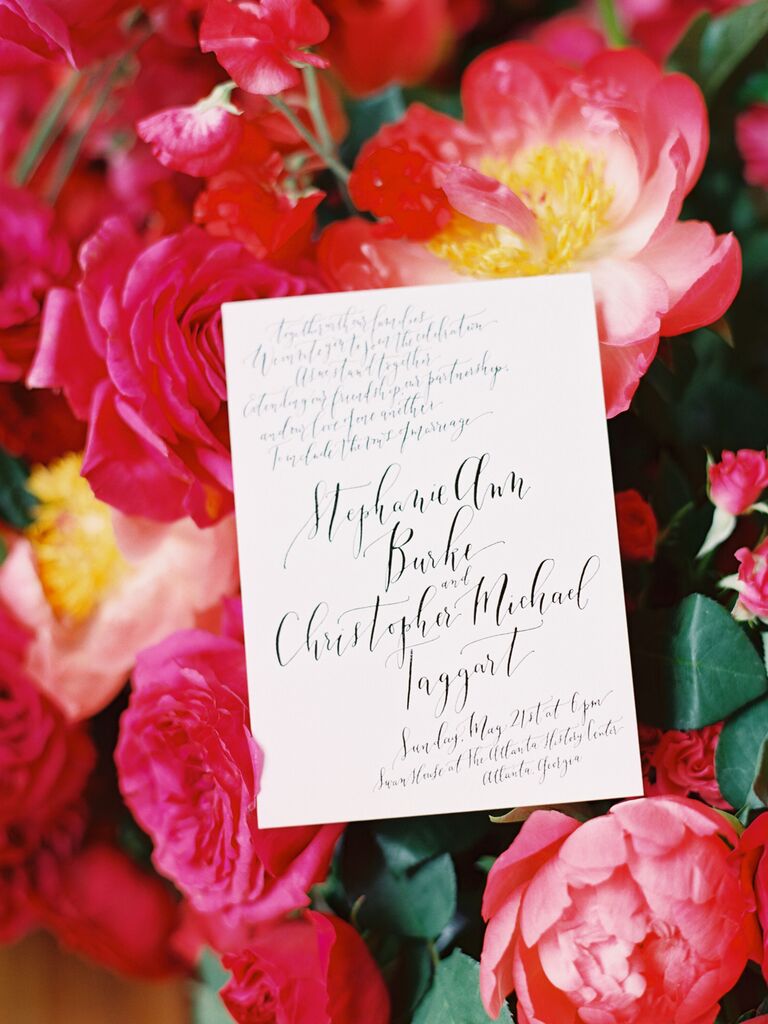 together with our families
We invite you to join the celebration
As we stand together
Extending our friendship, our partnership,
and our love for one another
To include the vows of marriage
Stephanie Ann
Burke
and
Christopher Michael
Taggart
Sunday, May 21st at 6 pm
Swan House at The Atlanta History Center
Atlanta, Georgia